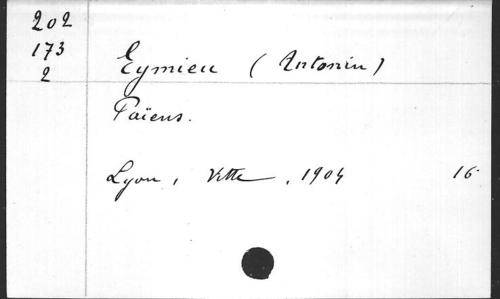 202
173
2
Eymieu (Antonin)
Païens.
Lyon, Vitte, 1904 16